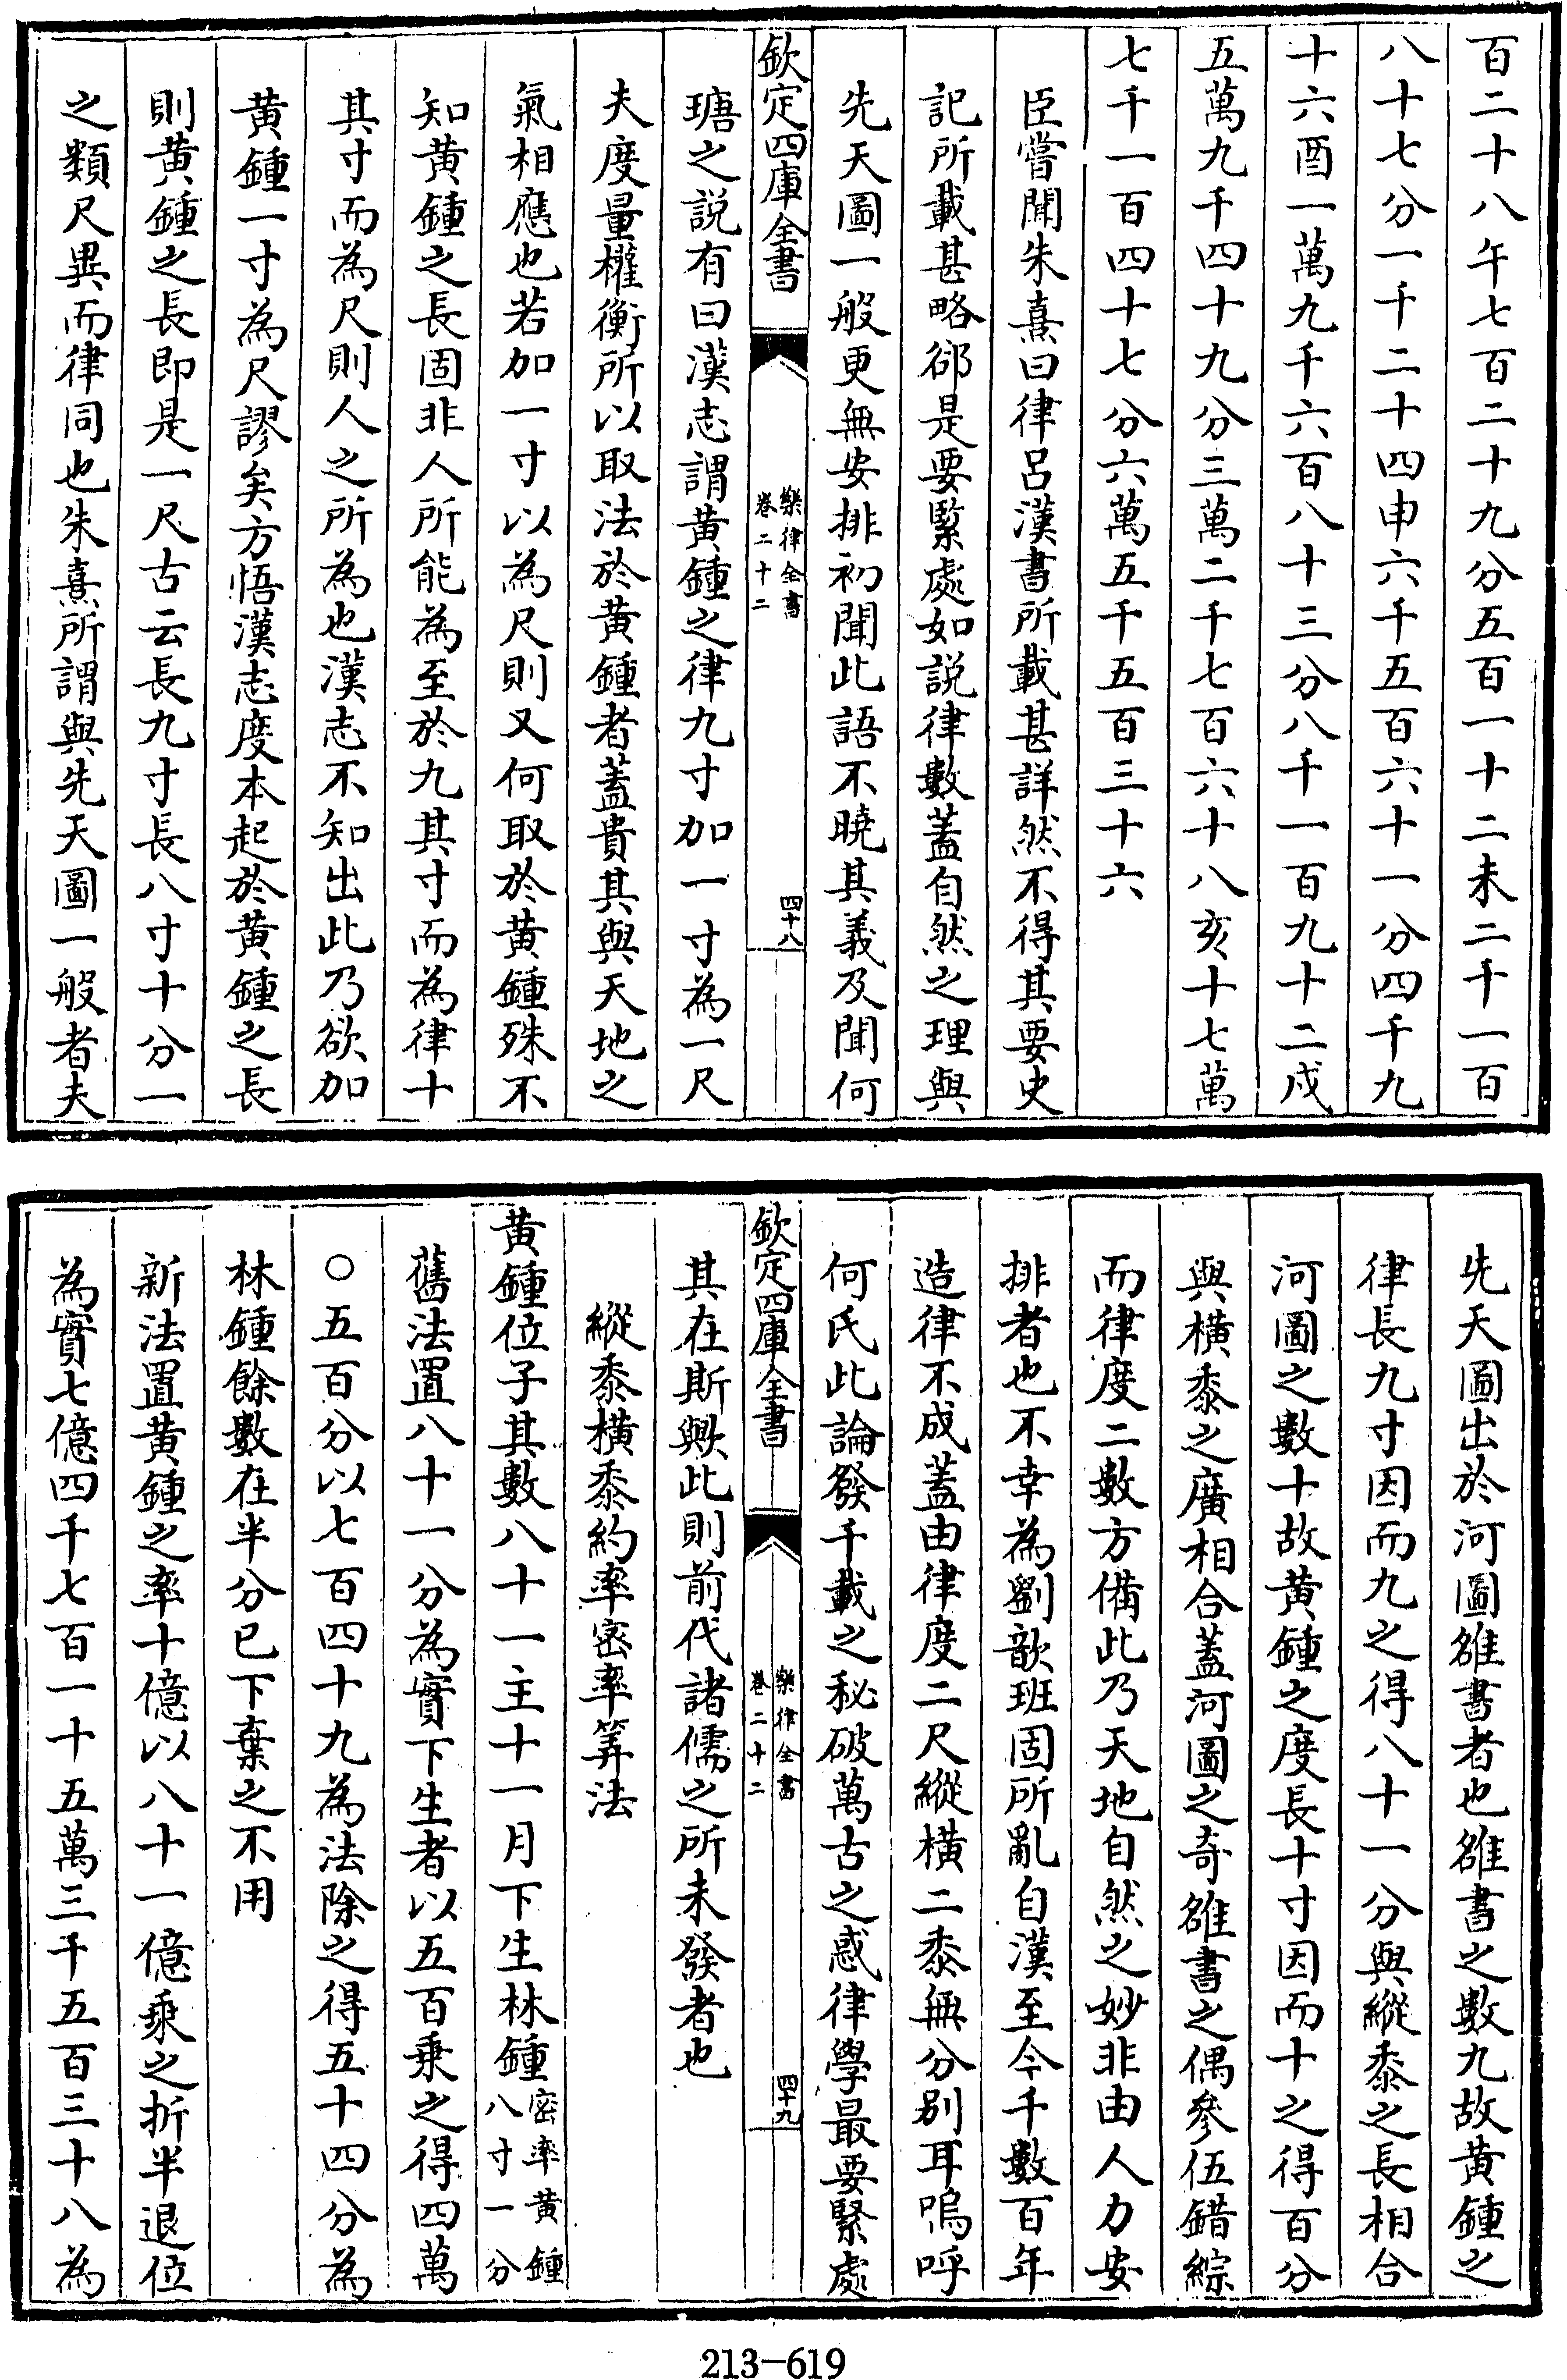 百二十八午七百二十九分五百一十二未二千一百
八十七分一千二十四申六千五百六十一分四千九
十六酉一萬九千六百八十三分八千一百九十二戌
五萬九千四十九分三萬二千七百六十八亥十七萬
七千一百四十七分六萬五千五百三十六
臣嘗聞朱熹曰律呂漢書所載甚詳然不得其要史
記所載甚略郤是要緊處如説律數蓋自然之理與
先天圖一般更無安排初聞此語不曉其義及聞何
欽定四庫全書
樂律全書
卷二十二
四十八
瑭之説有曰漢志謂黄鍾之律九寸加一寸為一尺
夫度量權衡所以取法於黄鍾者蓋貴其與天地之
氣相應也若加一寸以為尺則又何取於黄鍾殊不
知黄鍾之長固非人所能為至於九其寸而為律十
其寸而為尺則人之所為也漢志不知出此乃欲加
黄鍾一寸為尺謬矣方悟漢志度本起於黄鍾之長
則黄鍾之長即是一尺古云長九寸長八寸十分一
之類尺異而律同也朱熹所謂與先天圖一般者夫
先天圖出於河圖雒書者也雒書之數九故黄鍾之
律長九寸因而九之得八十一分與縱黍之長相合
河圖之數十故黄鍾之度長十寸因而十之得百分
與横黍之廣相合蓋河圖之奇雒書之偶參伍錯綜
而律度二數方備此乃天地自然之妙非由人力安
排者也不幸為劉歆班固所亂自漢至今千數百年
造律不成蓋由律度二尺縱横二黍無分别耳嗚呼
何氏此論發千載之秘破萬古之惑律學最要緊處
欽定四庫全書
樂律全書
卷二十二
四十九
其在斯歟此則前代諸儒之所未發者也
縱黍横黍約率密率筭法
黄鍾位子其數八十一主十一月下生林鍾密率黄鍾八寸一分
舊法置八十一分為實下生者以五百乗之得四萬
○五百分以七百四十九為法除之得五十四分為
林鍾餘數在半分已下棄之不用
新法置黄鍾之率十億以八十一億乗之折半退位
為實七億四千七百一十五萬三千五百三十八為
213-619